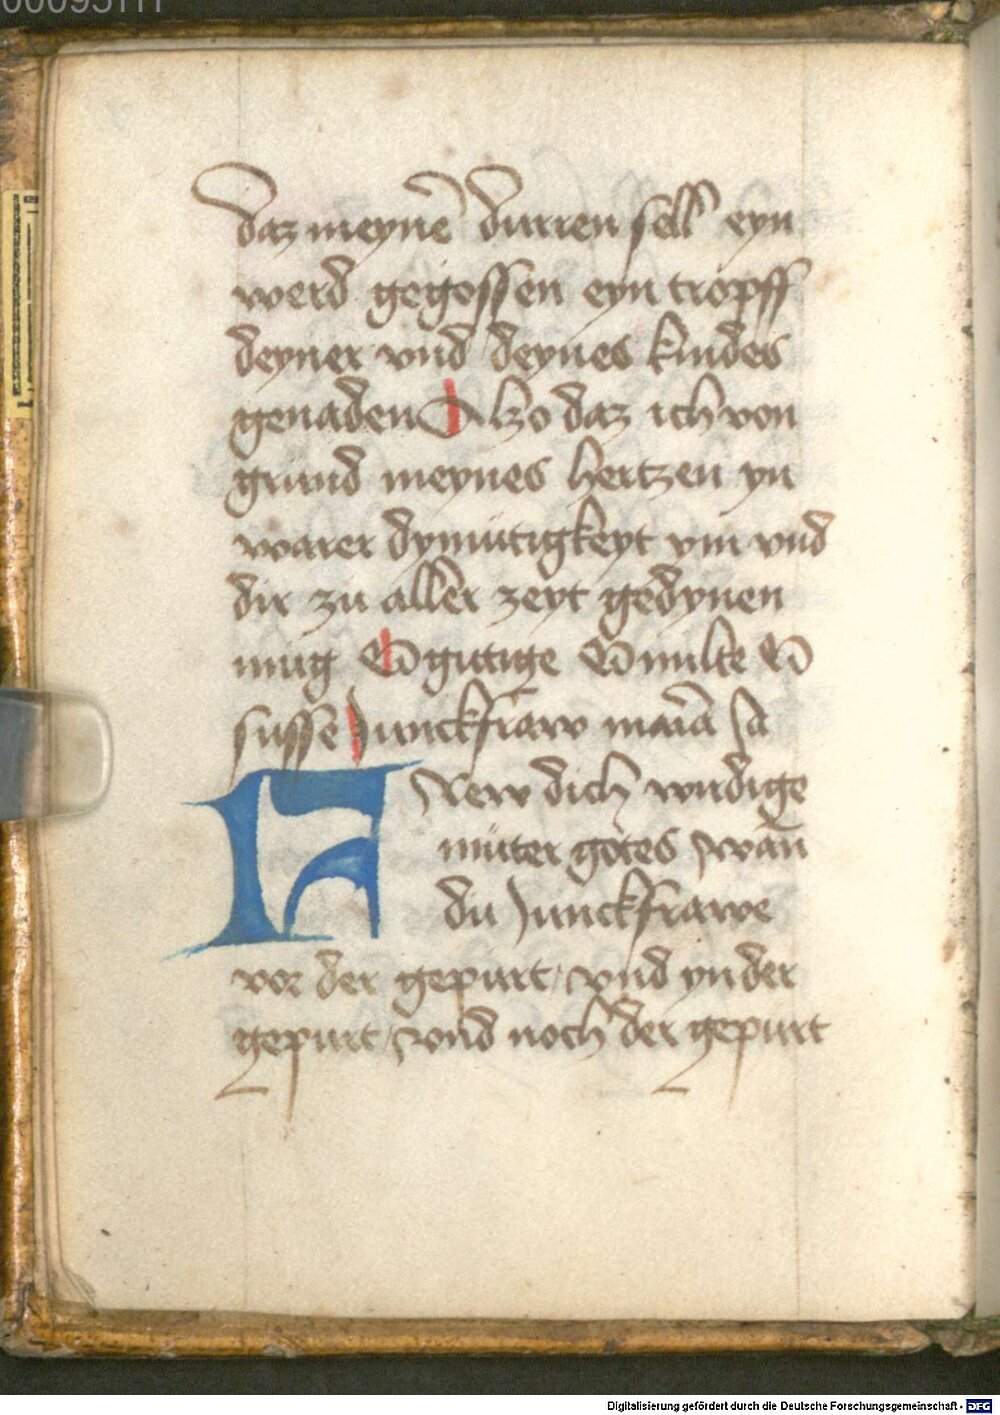 daz meynē durren sell eyn
werd gegossen eyn tropff
deyner vnd deynes kindes
genaden Alzo daz ich von
grund meynes hertzen yn
warer dymütigkeyt ym vnd
dir zu aller zeyt gedynen
mug O gutige O milte O
susse Junckfraw maria
FRew dich wirdige
müter gotes wān
du Junckfrawe
vor der gepurt vnd yn der
gepurt vnd noch der gepurt
Digitalisierung gefördert durch die Deutsche Forschungsgemeinschaft - DFG